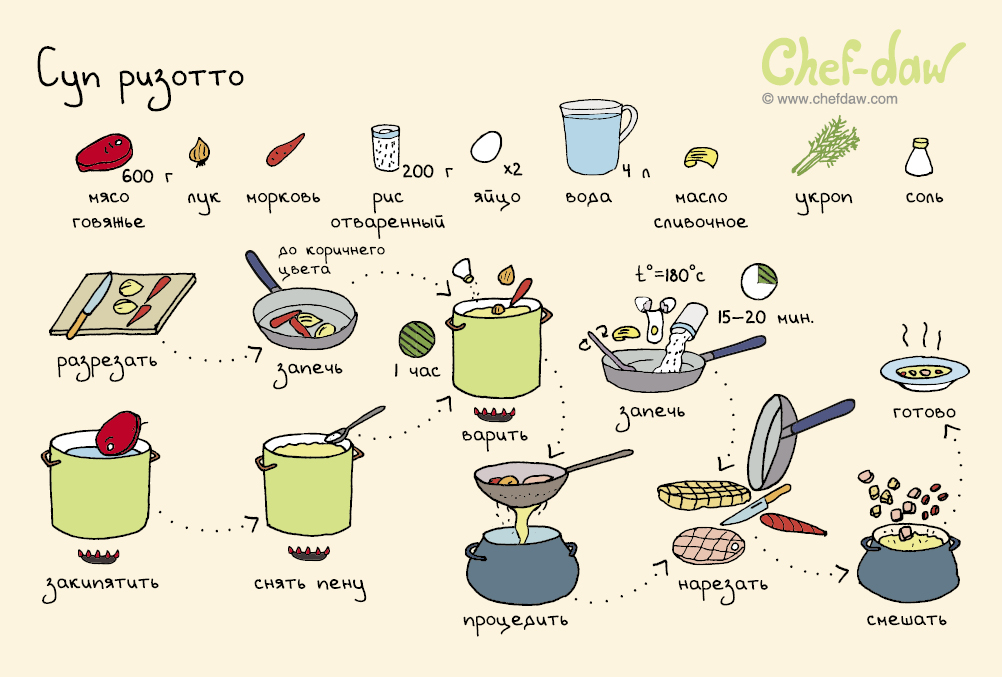 Суп ризотто
Chef-daw
© www.chefdaw.com
600 г
мясо
говяжье
лук
морковь
200 г
рис
отваренный
x2
яйцо
4 л
вода
масло
сливочное
укроп
соль
разрезать
до коричнего
цвета
запечь
1 час
варить
t°=180°c
15–20 мин.
запечь
готово
закипятить
снять пену
процедить
нарезать
смешать